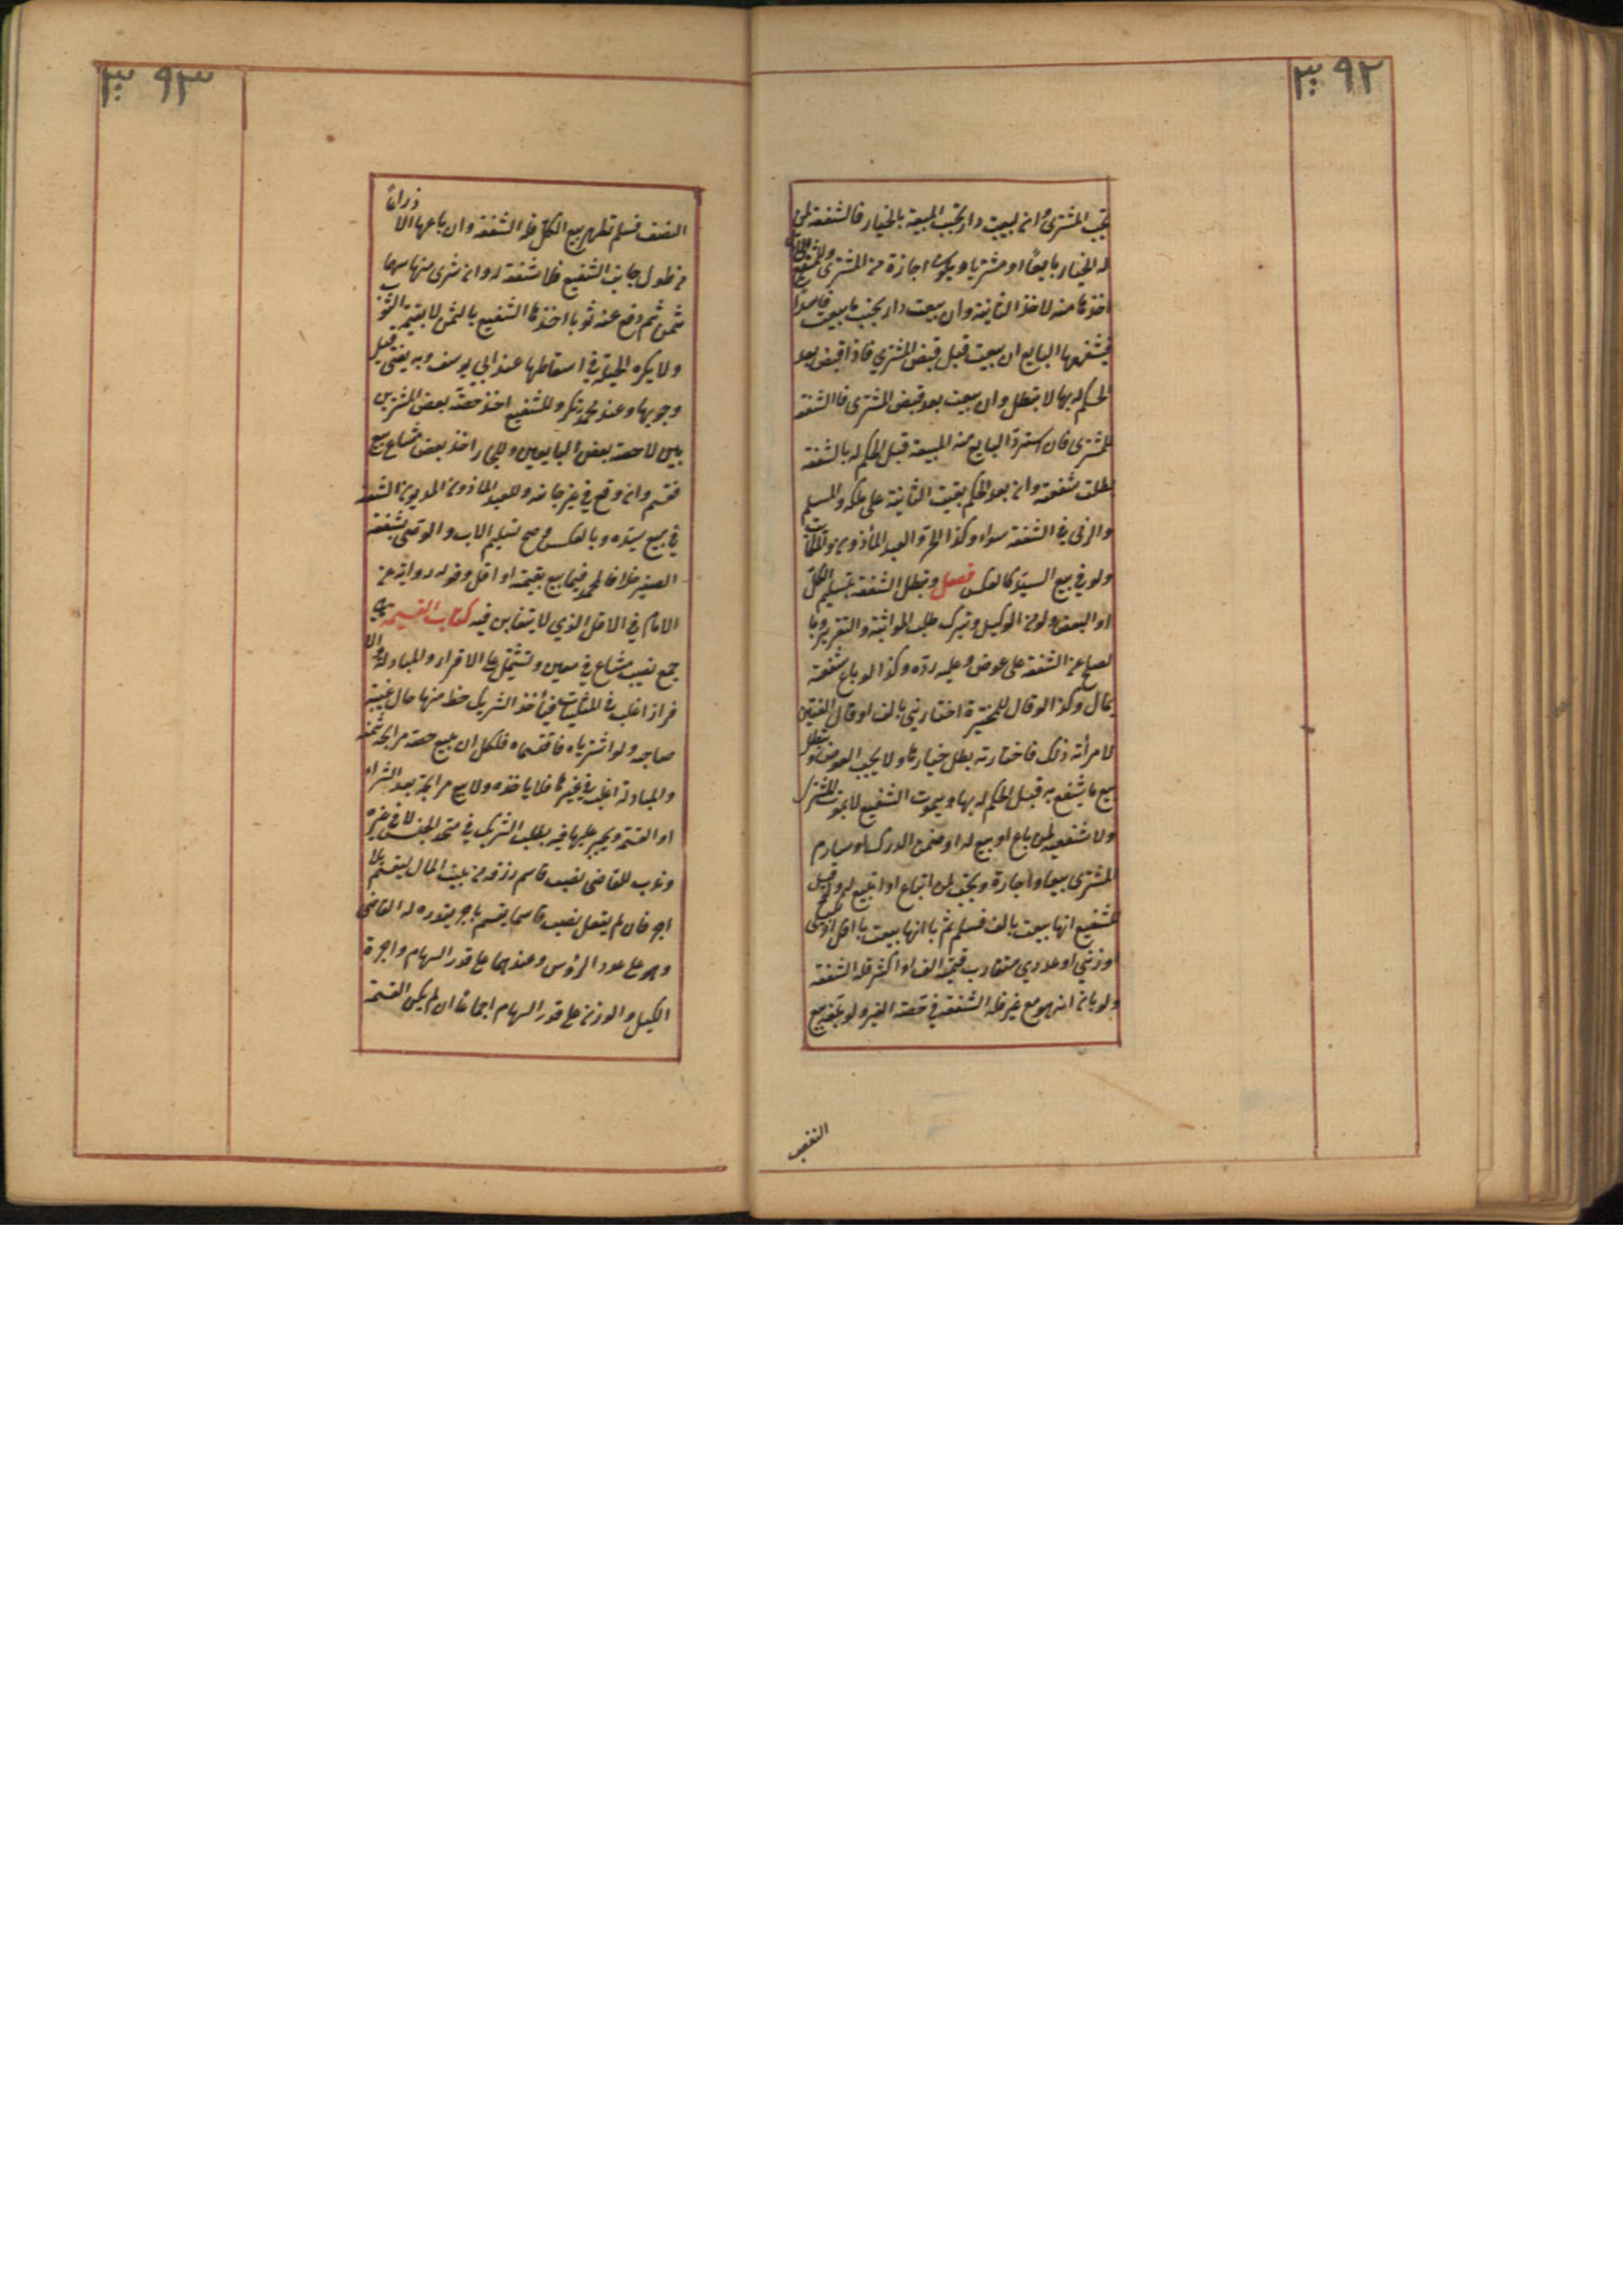 ٣٩٢
تجب للمشترى وان بيعت دار بجنب المبيعة بالخيار فالشفعة لمن
له الخيار بايعا او مشتريا ويكون اجازة من المشترى وللشفيع
اخذها منه لا اخذ الثانية وان بيعت دار بجنب ما بيعت فاسدا
فيشفعها البايع ان بيعت قبل قبض المشتري فاذا قبض بعد
الحكم له بها لا تبطل وان بيعت بعد قبض المشترى فالشفعة
للمشترى فان استرد البايع منه المبيعة قبل الحكم له بالشفعة
بطلت شفعته وان بعد الحكم بقيت الثانية على ملكه والمسلم
والذمى في الشفعة سواء وكذا الحر والعبد المأذون والمكاتب
ولو في بيع السيد كالعكس فصل وتبطل الشفعة بتسليم الكل
او البعض ولو من الوكيل وبترك طلب المواثبة والتقرير وبا
لصلح عن الشفعة على عوض وعليه رده وكذا لو باع شفعته
بمال وكذا لو قال للمخيرة اختاريني بالف او قال العنين
لامرأته ذلك فاختارته بطل خيارها ولا يجب العوض وتبطل
ببيع ما يشفع به قبل الحكم له بها وبموت الشفيع لا بموت المشترى
ولا شفعة لمن باع او بيع له او ضمن الدرك او ساوم
المشترى بيعا واجارة وتجب لمن ابتاع او ابتيع له ولو قيل
للشفيع انها بيعت بالف فسلم ثم بان انها بيعت باقل او بكيلى
او وزني او عددي متقارب قيمته الف او اكثر فله الشفعة
ولو بان انه هو مع غيره فله الشفعة في حصة الغير ولو بلغه بيع
النصف
٣٩٣
النصف فسلم فظهر بيع الكل فله الشفعة وان باعها الا ذراعا
من طول جانب الشفيع فلا شفعة له وان شرى منها سهما
بثمن ثم دفع عنه ثوبا اخذها الشفيع بالثمن لا بقيمة الثوب
ولا يكره الحيلة في اسقاطها عند ابي يوسف وبه يفتى قبل
وجوبها وعند محمد تكره وللشفيع اخذ حصة بعض المشترين
لا حصة بعض البايعين وللجار اخذ بعض مشاع بيع
فقسم وان وقع في غير جانبه وللعبد المأذون المديون الشفعة
في بيع سيده وبالعكس وصح تسليم الاب والوصى شفعة
الصغير خلافا لمحمد فيما بيع بقيمته او اقل وقوله رواية عن
الامام في الاقل الذي لا يتغابن فيه كتاب القسمة هي
جمع نصيب شايع في معين وتشتمل على الاقرار والمبادلة والا
فراز اغلب في المثليات فيأخذ الشريك حظه منها حال غيبة
صاحبه ولو اشترياه فاقتسماه فلكل ان يبيع حصته مرابحة بثمنه
والمبادلة اغلب في غيرها فلا يأخذه ولا يبيع مرابحة بعد الشراء
او القسمة ويجبر عليها فيه بطلب الشريك في متحد الجنس لا في غيره
وندب للقاضى نصب قاسم رزقه من بيت المال ليقسم بلا
اجر فان لم يفعل نصب قاسما يقسم باجر يقدره له القاضى
وهو على عدد الرؤس وعندهما على قدر السهام واجرة
الكيل والوزن على قدر السهام اجماعا ان لم يكن القسمة